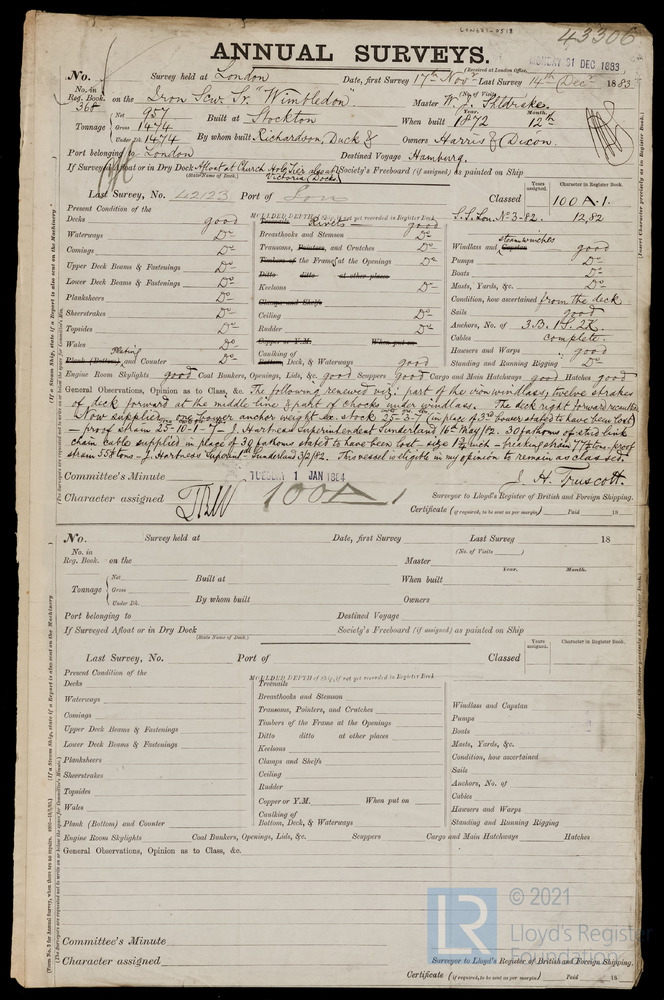 LON681-0518
43306
ANNUAL SURVEYS.
(Received at London Office,
MONDAY 31 DEC 1883
No. Survey held at London Date, first Survey 17th Novr Last Survey 14th Decr 1883
No. in Reg. Book. 368 on the Iron Scw. Sr. "Wimbledon" (No. of Visits) Master W. J. Sheldrake.
Tonnage Net 957 Gross 1474 Under Dk. 1474
Built at Stockton When built Year. 1872 Month. 12th
By whom built Richardson, Duck & Owners Harris & Dixon.
Port belonging to London Destined Voyage Hamburg.
If Surveyed Afloat or in Dry Dock Afloat at Church Hole Tier also at Victoria Docks Society's Freeboard (if assigned) as painted on Ship
(State Name of Dock.)
Years assigned. Character in Register Book.
Last Survey, No. 42123 Port of Lon Classed 100 A.1.
S.S. Lon. No 3-82. 12,82
Present Condition of the
MOULDED DEPTH of Ship, if not yet recorded in Register Book
Decks good
Waterways Do
Comings Do
Upper Deck Beams & Fastenings Do
Lower Deck Beams & Fastenings Do
Planksheers Do
Sheerstrakes Do
Topsides Do
Wales Do
Plank (Bottom) Plating and Counter Do
Treenails Rivets good
Breasthooks and Stemson Do
Transoms, Pointers, and Crutches Do
Timbers of the Frame at the Openings Do
Ditto ditto at other places
Keelsons Do
Clamps and Shelfs
Ceiling Do
Rudder Do
Copper or Y.M. When put on
Caulking of Bottom, Deck, & Waterways good
Windlass and Capstan steam winches good
Pumps Do
Boats Do
Masts, Yards, &c. Do
Condition, how ascertained from the deck
Sails good
Anchors, No. of 3 B. 1 S. 2 K.
Cables complete.
Hawsers and Warps good
Standing and Running Rigging Do
Engine Room Skylights good Coal Bunkers, Openings, Lids, &c. good Scuppers good Cargo and Main Hatchways good Hatches good
General Observations, Opinion as to Class, &c. The following renewed viz: part of the iron windlass, twelve strakes
of deck forward at the middle line & part of chocks under windlass. The deck right forward recaulked
Now supplied one bower anchor weight ex stock 25-3-7 (in place of 3rd bower stated to have been lost)
— proof strain 25-10-1-7 — J. Hartness Superintendent Sunderland 16th May/82. 30 fathoms of stud link
chain cable supplied in place of 30 fathoms stated to have been lost - size 1 3/4 inch - breaking strain 77 1/8 tons - proof
strain 55 1/8 tons - J. Hartness Suptndt Sunderland 3/2/82. This vessel is eligible in my opinion to remain as classed.
Committee's Minute TUESDAY 1 JAN 1884 J. H. Truscott.
Character assigned 100 A 1 Surveyor to Lloyd's Register of British and Foreign Shipping.
Certificate (if required, to be sent as per margin) Paid 18
No. Survey held at Date, first Survey Last Survey 18
No. in Reg. Book. on the (No. of Visits ) Master
Tonnage Net Gross Under Dk.
Built at When built Year. Month.
By whom built Owners
Port belonging to Destined Voyage
If Surveyed Afloat or in Dry Dock Society's Freeboard (if assigned) as painted on Ship
(State Name of Dock.)
Years assigned. Character in Register Book.
Last Survey, No. Port of Classed
Present Condition of the
MOULDED DEPTH of Ship, if not yet recorded in Register Book
Decks
Waterways
Comings
Upper Deck Beams & Fastenings
Lower Deck Beams & Fastenings
Planksheers
Sheerstrakes
Topsides
Wales
Plank (Bottom) and Counter
Treenails
Breasthooks and Stemson
Transoms, Pointers, and Crutches
Timbers of the Frame at the Openings
Ditto ditto at other places
Keelsons
Clamps and Shelfs
Ceiling
Rudder
Copper or Y.M. When put on
Caulking of Bottom, Deck, & Waterways
Windlass and Capstan
Pumps
Boats
Masts, Yards, &c.
Condition, how ascertained
Sails
Anchors, No. of
Cables
Hawsers and Warps
Standing and Running Rigging
Engine Room Skylights Coal Bunkers, Openings, Lids, &c. Scuppers Cargo and Main Hatchways Hatches
General Observations, Opinion as to Class, &c.
Committee's Minute
Character assigned Surveyor to Lloyd's Register of British and Foreign Shipping.
Certificate (if required, to be sent as per margin) Paid 18
LR
© 2021
Lloyd's Register
Foundation